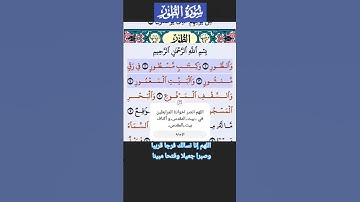 سُورَةُ الطُّورِ
الطُّور
بِسْمِ اللَّهِ الرَّحْمَٰنِ الرَّحِيمِ
وَالطُّورِ ١ وَكِتَابٍ مَّسْطُورٍ ٢ فِي رَقٍّ
مَّنشُورٍ ٣ وَالْبَيْتِ الْمَعْمُورِ ٤
وَالسَّقْفِ الْمَرْفُوعِ ٥ وَالْبَحْرِ
الْمَسْجُورِ
اللهم انصر اخواننا المرابطين
في بيت المقدس و أكناف
بيت المقدس
اللهم إنا نسألك فرجا قريبا
وصبرا جميلا وفتحا مبينا